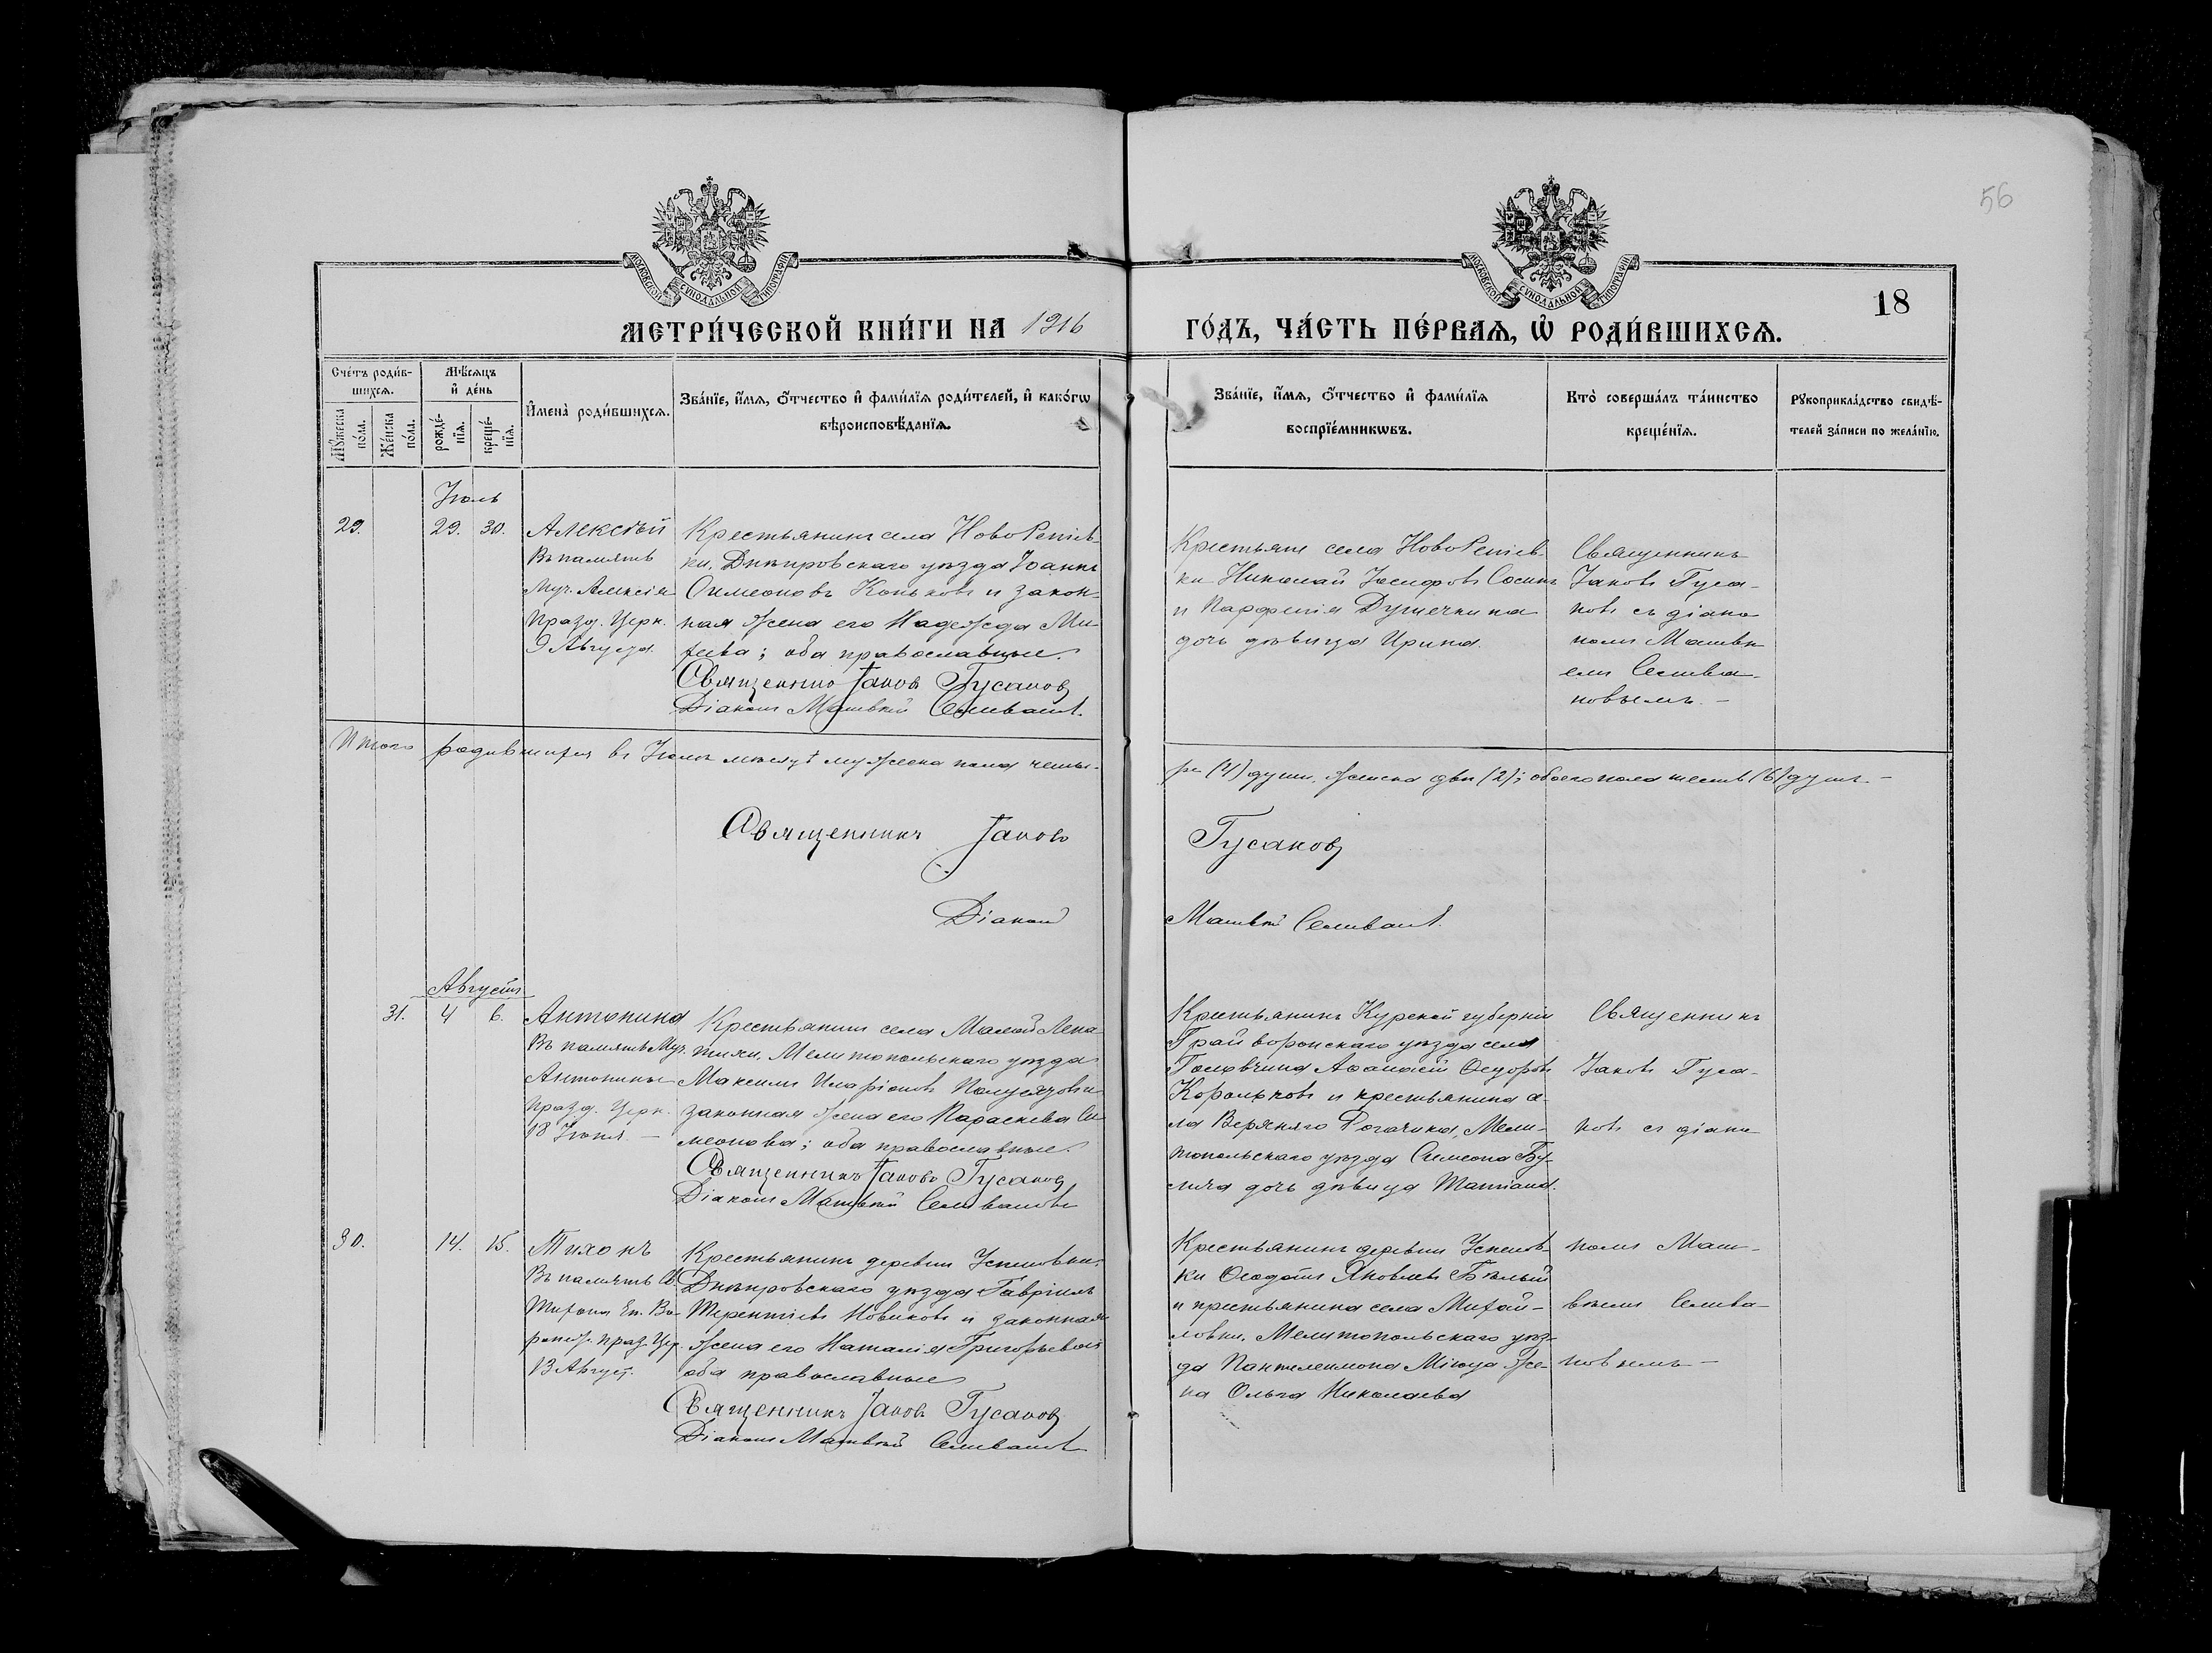 56
МОСКОВСКОЙ СУНОДАЛЬНОЙ ТИПОГРАФІИ
МОСКОВСКОЙ СУНОДАЛЬНОЙ ТИПОГРАФІИ
18
МЕТРИ́ЧЕСКОЙ КНИ́ГИ НА 1916
ГО́ДЪ, ЧА́СТЬ ПЕ́РВАѦ, Ѡ҆ РОДИ́ВШИХСѦ.
Сче́тъ роди́в-
шихсѧ.
Мꙋ́жеска
по́ла.
Же́нска
по́ла.
Мѣ́сѧцъ
и҆ де́нь
рожде́-
нїѧ.
креще́-
нїѧ.
И҆мена̀ роди́вшихсѧ.
Зва́нїе, и҆́мѧ, ѻ҆́тчество и҆ фами́лїѧ роди́телей, и҆ како́гѡ
вѣроисповѣ́данїѧ.
Зва́нїе, и҆́мѧ, ѻ҆́тчество и҆ фами́лїѧ
воспрїе́мникѡвъ.
Кто̀ соверша́лъ та́инство
креще́нїѧ.
Рꙋкоприкла́дство свидѣ́-
телей за́писи по жела́нїю.
Іюль
29.
29. 30.
Алексѣй
Въ память
Муч. Алексія
Празд. Церк.
9 Августа.
Крестьянинъ села НовоРепіев-
ки, Днѣпровскаго уѣзда Іоаннъ
Симеоновъ Коньковъ и закон-
ная жена его Надежда Ми-
хеева; оба православные.
Священникъ Іаковъ Гусаковъ
Діаконъ Матвѣй Селивановъ.
Крестьяне села НовоРепіев-
ки Николай Іосифовъ Сосинъ
и Парфенія Душечкина
дочь дѣвица Ирина.
Священникъ
Іаковъ Гуса-
ковъ съ діако
номъ Матвѣ
емъ Селива-
новымъ. –
Итого родившихся въ Іюлѣ мѣсяцѣ мужеска пола четы-
ре (4) души, женска двѣ (2); обоего пола шесть (6) душъ. –
Священникъ Іаковъ
Гусаковъ
Діаконъ
Матвѣй Селивановъ.
Августъ
31.
4 6.
Антонина
Въ память Муч.
Антонины
Празд. Церк.
13 Іюня. –
Крестьянинъ села Малой Лепа-
тихи, Мелитопольскаго уѣзда
Максимъ Иларіоновъ и
законная жена его Параскева Си-
меонова; оба православные.
Священникъ Іаковъ Гусаковъ
Діаконъ Матвѣй Селивановъ
Крестьянинъ Курской губерніи
Грайворонскаго уѣзда села
Головчина Аѳанасій Ѳедоровъ
Корольковъ и крестьянина се-
ла Верхняго Рогачика, Мели-
топольскаго уѣзда Симеона
дочь дѣвица Татіана.
Священникъ
Іаковъ Гуса-
ковъ съ діако
30.
14. 15.
Тихонъ
Въ память Св.
Тихона Еп. Во-
ронеж. праз. Цер.
13 Август.
Крестьянинъ деревни Успеновки,
Днѣпровскаго уѣзда Гавріилъ
Терентіевъ Новиковъ и законная
жена его Наталія Григорьева;
оба православные
Священникъ Іаковъ Гусаковъ
Діаконъ Матвѣй Селивановъ
Крестьянинъ деревни Успенов-
ки Ѳеодотъ Яковлевъ Бѣлый
и крестьянина села Михай-
ловки, Мелитопольскаго уѣз-
да Пантелеимона же-
на Ольга Николаева
номъ Мат-
вѣемъ Селива-
новымъ –